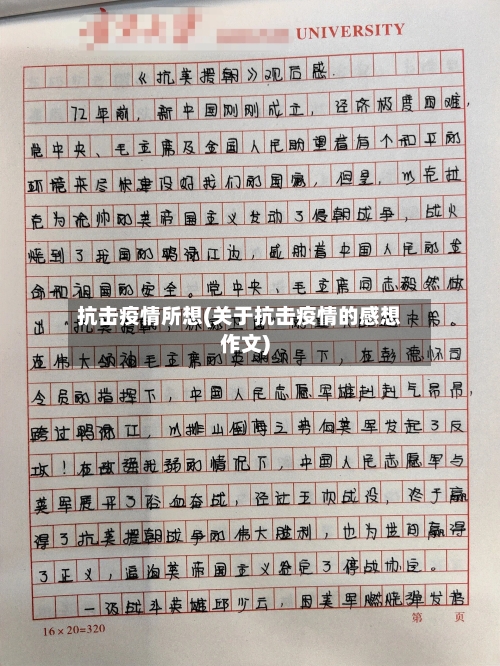 UNIVERSITY
《抗美援朝》观后感.
72年前，新中国刚刚成立，经济极度困难，
党中央、毛主席及全国人民盼望着有个和平的
环境来尽快建设好我们的国家，但是，以克拉
克为统帅的美帝国主义发动了侵朝战争，战火
烧到了我国的鸭绿江边，威胁着中国人民的生
命和祖国的安全。党中央、毛主席同志毅然做
出"抗美援朝
抗击疫情所想(关于抗击疫情的感想
作文)
在伟大领袖毛主席的英明领导下，在彭德怀司
令员的指挥下，中国人民志愿军雄赳赳气昂昂，
跨过鸭绿江，以排山倒海之势向美军发起了反
攻！在敌强我弱的情况下，中国人民志愿军与
美军展开了浴血奋战，经过五次战役，终于赢
得了抗美援朝战争的伟大胜利，也为世间赢得
了正义，逼迫美帝国主义签定了停战协定。
一级战斗英雄邱少云，因美军燃烧弹发着
16×20=320
第 页